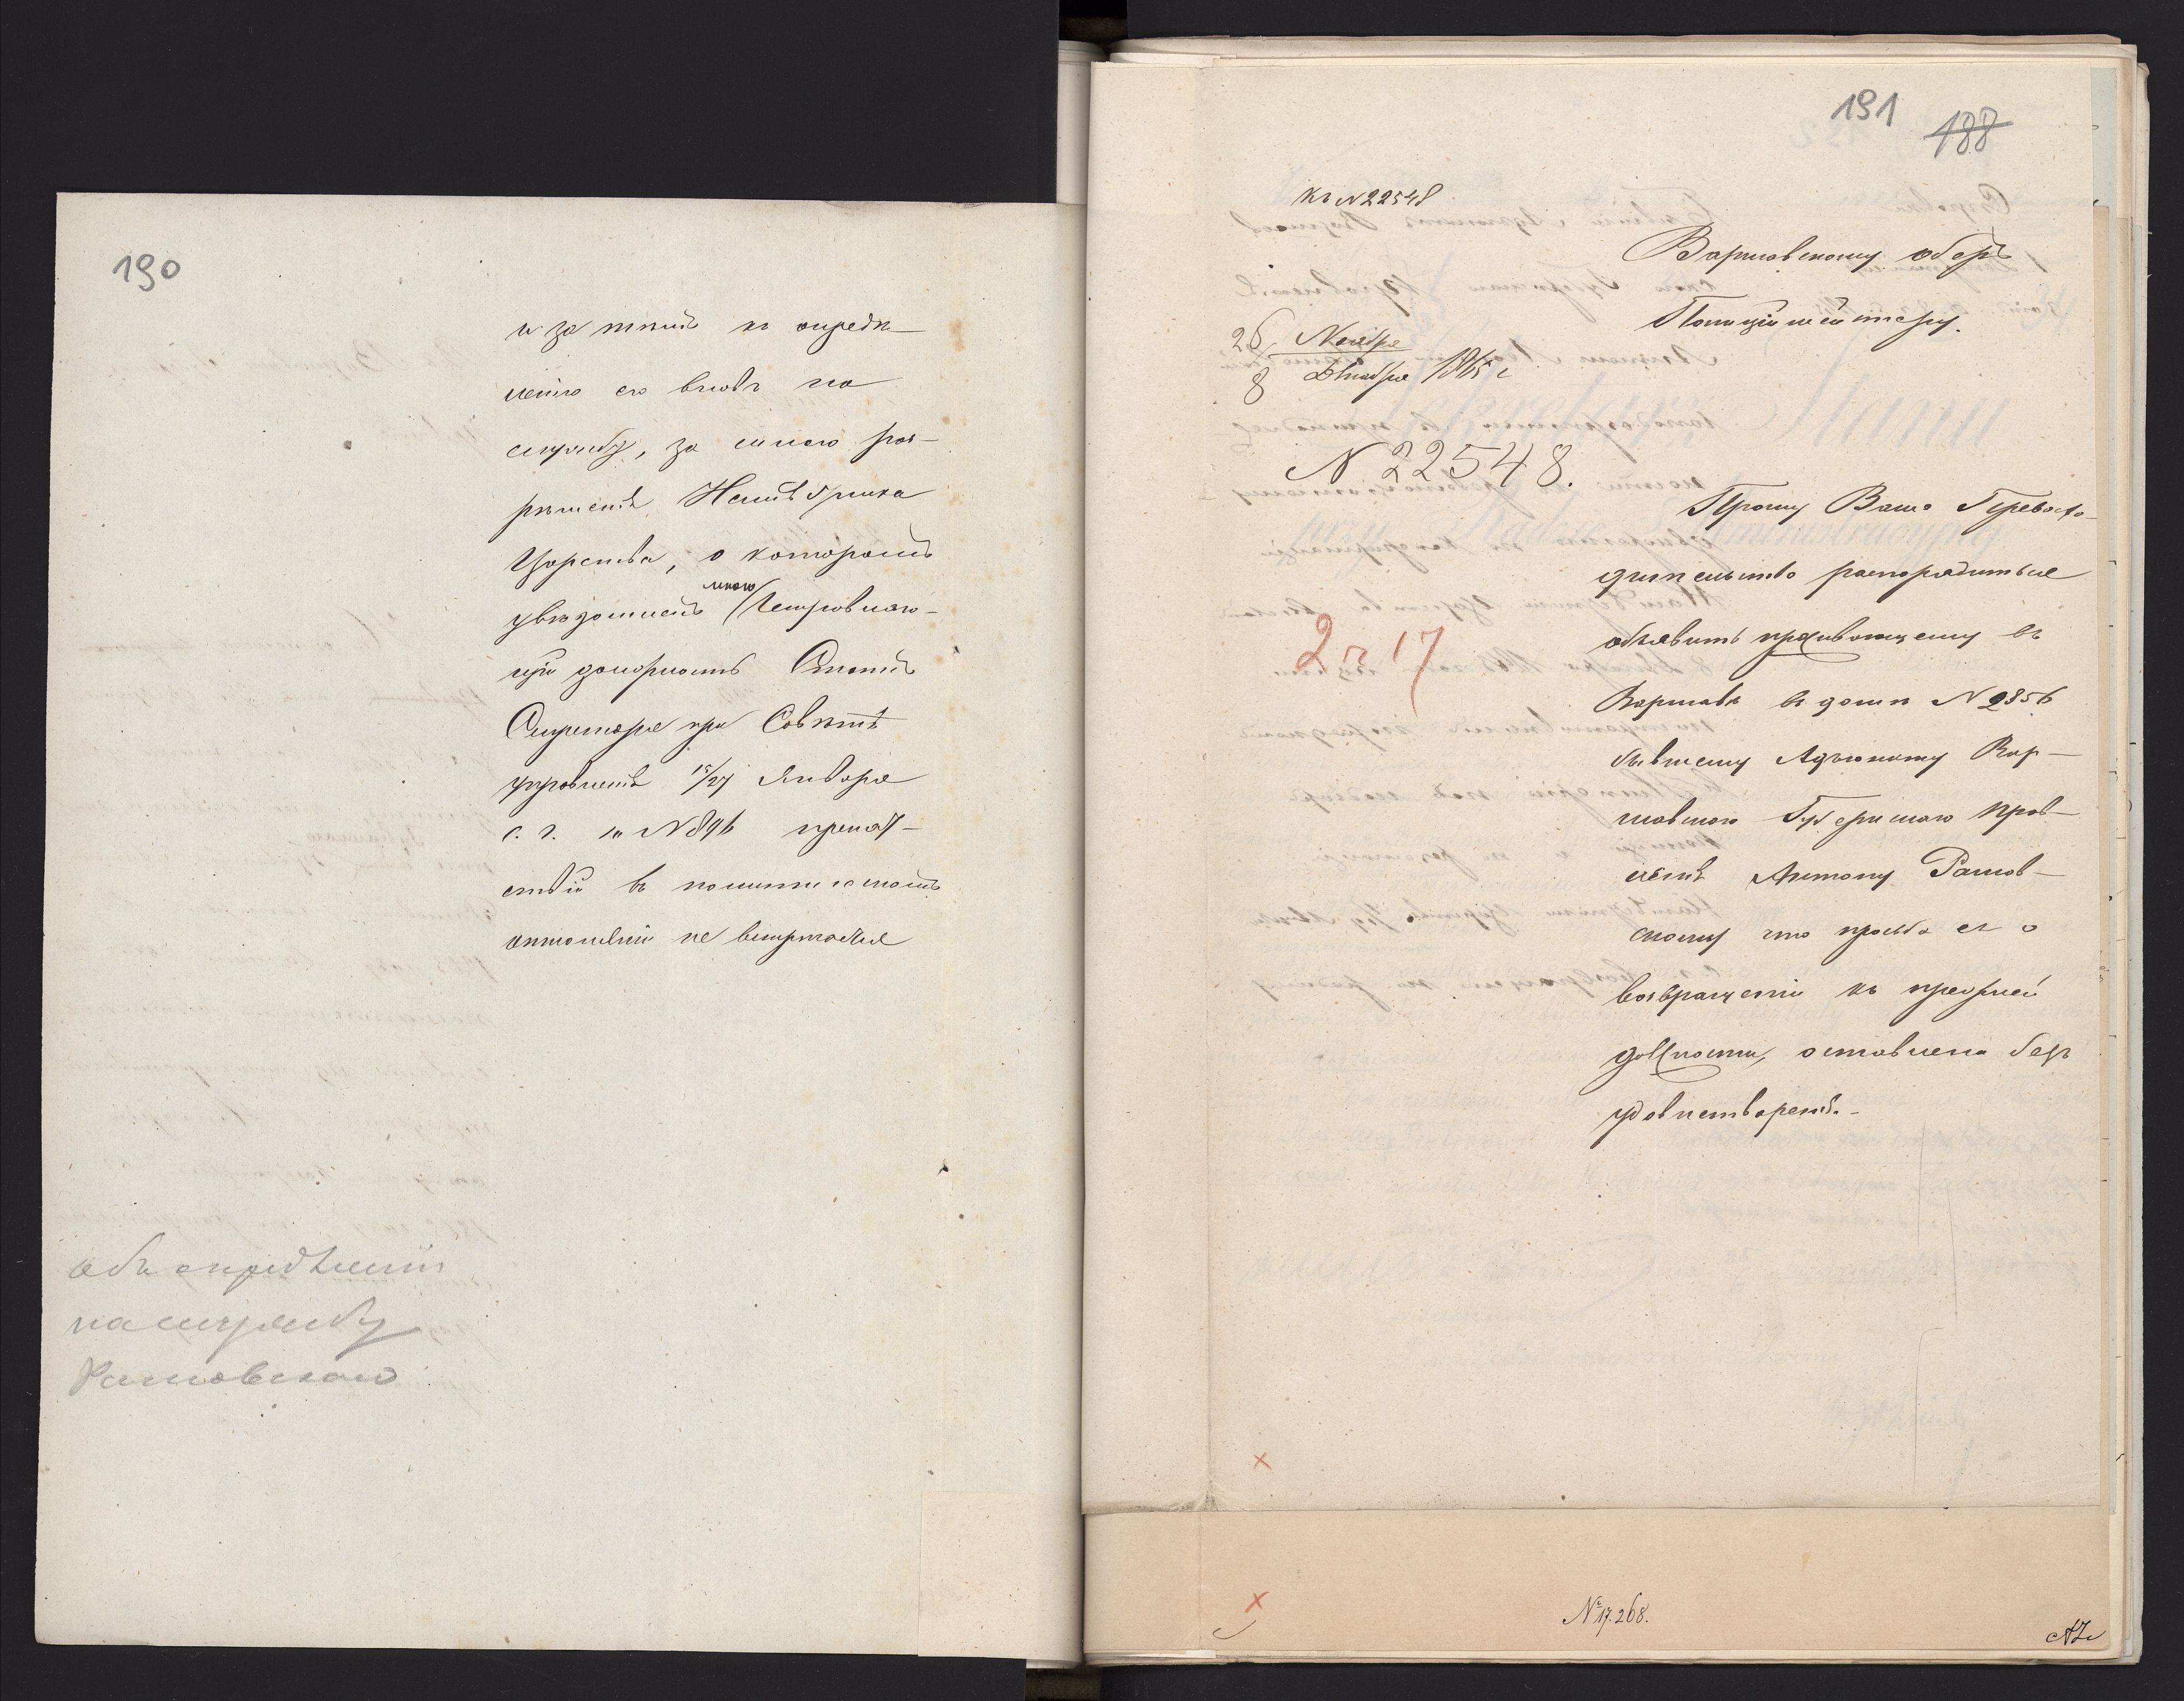 190
и за тѣмъ къ опредѣ-
ленію его вновь на
службу, за силою раз-
рѣшенія Намѣстника
Царства, о которомъ
мною
увѣдомленъ Исправляю-
щій должность Статсъ
Секретаря при Совѣтѣ
управленія 15/27 Января
с. г. за N 896 препят-
ствій въ политическомъ
отношеніи не встрѣчается
объ опредѣленіи
на службу
Рашовскаго
191
188
къ N 22548
Варшавскому оберъ
Полиціймейстеру.
26 Ноября
8 Декабря 1865 г
N 22548.
2 г 17
Прошу Ваше Превосхо-
дительство распорядиться
объявить проживающему въ
Варшавѣ въ домѣ N 2356
бывшему Адъюнкту Вар-
шавскаго Губернскаго Прав-
ленія Антону Рашов-
скому что просьба его о
возвращеніи къ прежней
должности, оставлена безъ
удовлетворенія.-
№ 17.268.